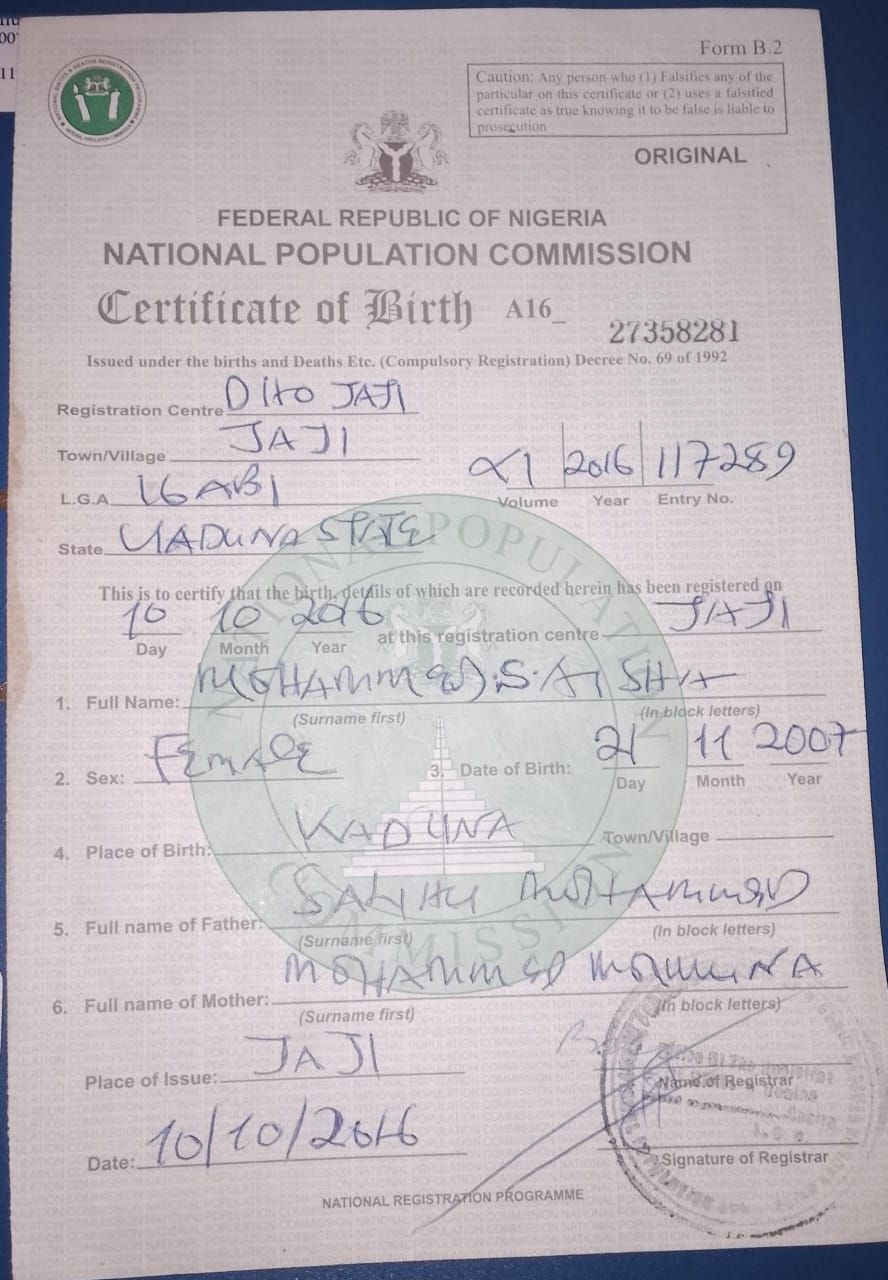 Form B.2
Caution: Any person who (1) Falsifies any of the
particular on this certificate or (2) uses a falsified
certificate as true knowing it to be false is liable to
prosecution
ORIGINAL
FEDERAL REPUBLIC OF NIGERIA
NATIONAL POPULATION COMMISSION
Certificate of Birth A16_ 27358281
Issued under the births and Deaths Etc. (Compulsory Registration) Decree No. 69 of 1992
Registration Centre DITTO JAJI
Town/Village JAJI
L.G.A IGABI
2016 117289
Volume Year Entry No.
State KADUNA STATE
This is to certify that the birth, details of which are recorded herein has been registered on
10 10 2016 at this registration centre JAJI
Day Month Year
1. Full Name: MOHAMMED.S.AISHA
(Surname first) (In block letters)
2. Sex: FEMALE 3. Date of Birth: 21 11 2007
Day Month Year
4. Place of Birth: KADUNA Town/Village
5. Full name of Father: SALIHU MOHAMMED
(Surname first) (In block letters)
6. Full name of Mother: MOHAMMED MAIMUNA
(Surname first) (In block letters)
Place of Issue: JAJI
Name of Registrar
Date: 10/10/2016
Signature of Registrar
NATIONAL REGISTRATION PROGRAMME
NATIONAL POPULATION COMMISSION